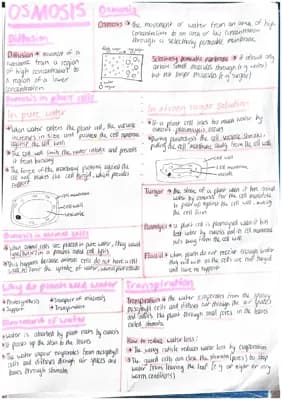 OSMOSIS
Diffusion
Diffusion → movement of a
substance from a region
of high concentration to
a region of a lower
concentration
Osmosis
Osmosis → the movement of water from an area of high
concentration to an area of low concentration
through a selectively permeable membrane
Selectively permeable membrane →
certain small molecules through (e.g. water)
but not larger molecules (e.g. sugar)
Osmosis in plant cells
In pure water
When water enters the plant cell, the vacuole
increases in size and pushes the cell membrane
against the cell wall
The cell wall limits the water intake and prevents
it from bursting
The force of the membrane pressing against the
cell wall makes the cell turgid, which provides
support
cell membrane
cell wall
vacuole
In strong sugar solution
If a plant cell loses too much water by
osmosis, plasmolysis occurs
During plasmolysis the cell vacuole shrinks
pulling the cell membrane away from the cell wall
cell wall
cell membrane
vacuole
Turgor → the state of a plant when it has
water by osmosis for the cell membrane
to push up against the cell wall, making
the cell firm
a plant cell is plasmolysed when it has
lost water by osmosis and its cell membrane
pulls away from the cell wall
Flaccid → when plants do not receive enough water
they will wilt as the cells are not turgid
and have no support
Osmosis in animal cells
When animal cells are placed in pure water, they
This happens because animal cells do not have a cell
wall to limit the uptake of water
Why do plants need water
Photosynthesis
Support
Transport of minerals
Transpiration
Movement of water
Water is absorbed by plant roots by osmosis
It passes up the stem to the leaves
The water vapour evaporates from mesophyll
cells and diffuses through air spaces and
leaves through stomata
Transpiration
Transpiration → the water evaporates from the spongy
mesophyll cells and diffuses out through the air spaces
and leaves the plant through small pores in the leaves
called stomata
How to reduce water loss:
The waxy cuticle reduces water loss by evaporation
The guard cells can close the stomata (pores) to stop
water from leaving the leaf (e.g. at night or in
warm conditions)